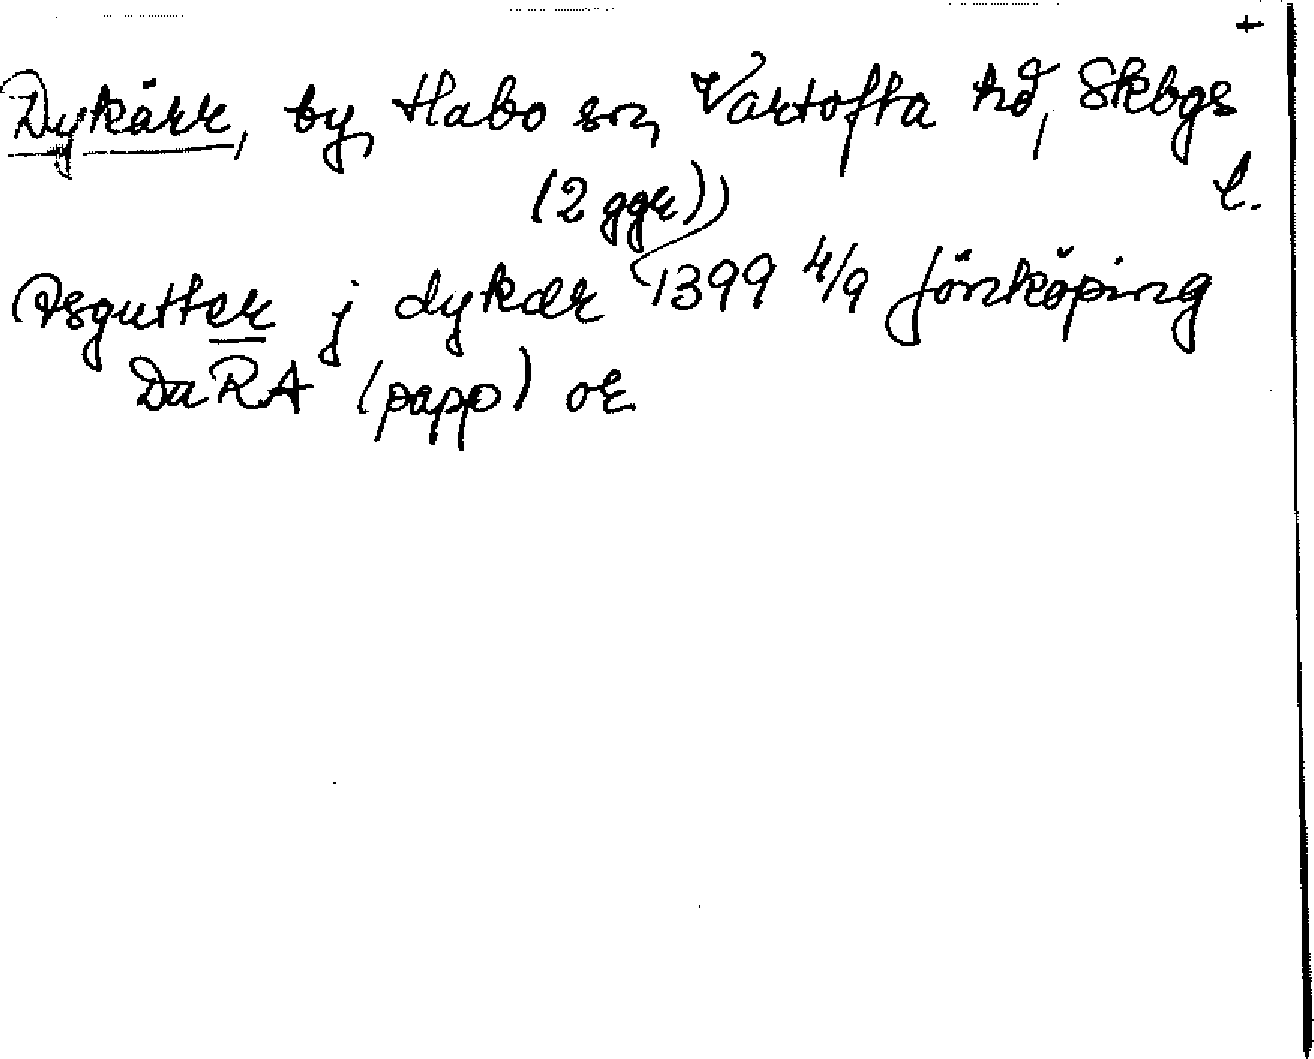 +
Dykärr, by, Habo sn, Vartofta hd, Skbgs
l.
(2 ggr))
Asgutter j dykær 1399 4/9 Jönköping
DaRA (papp) or